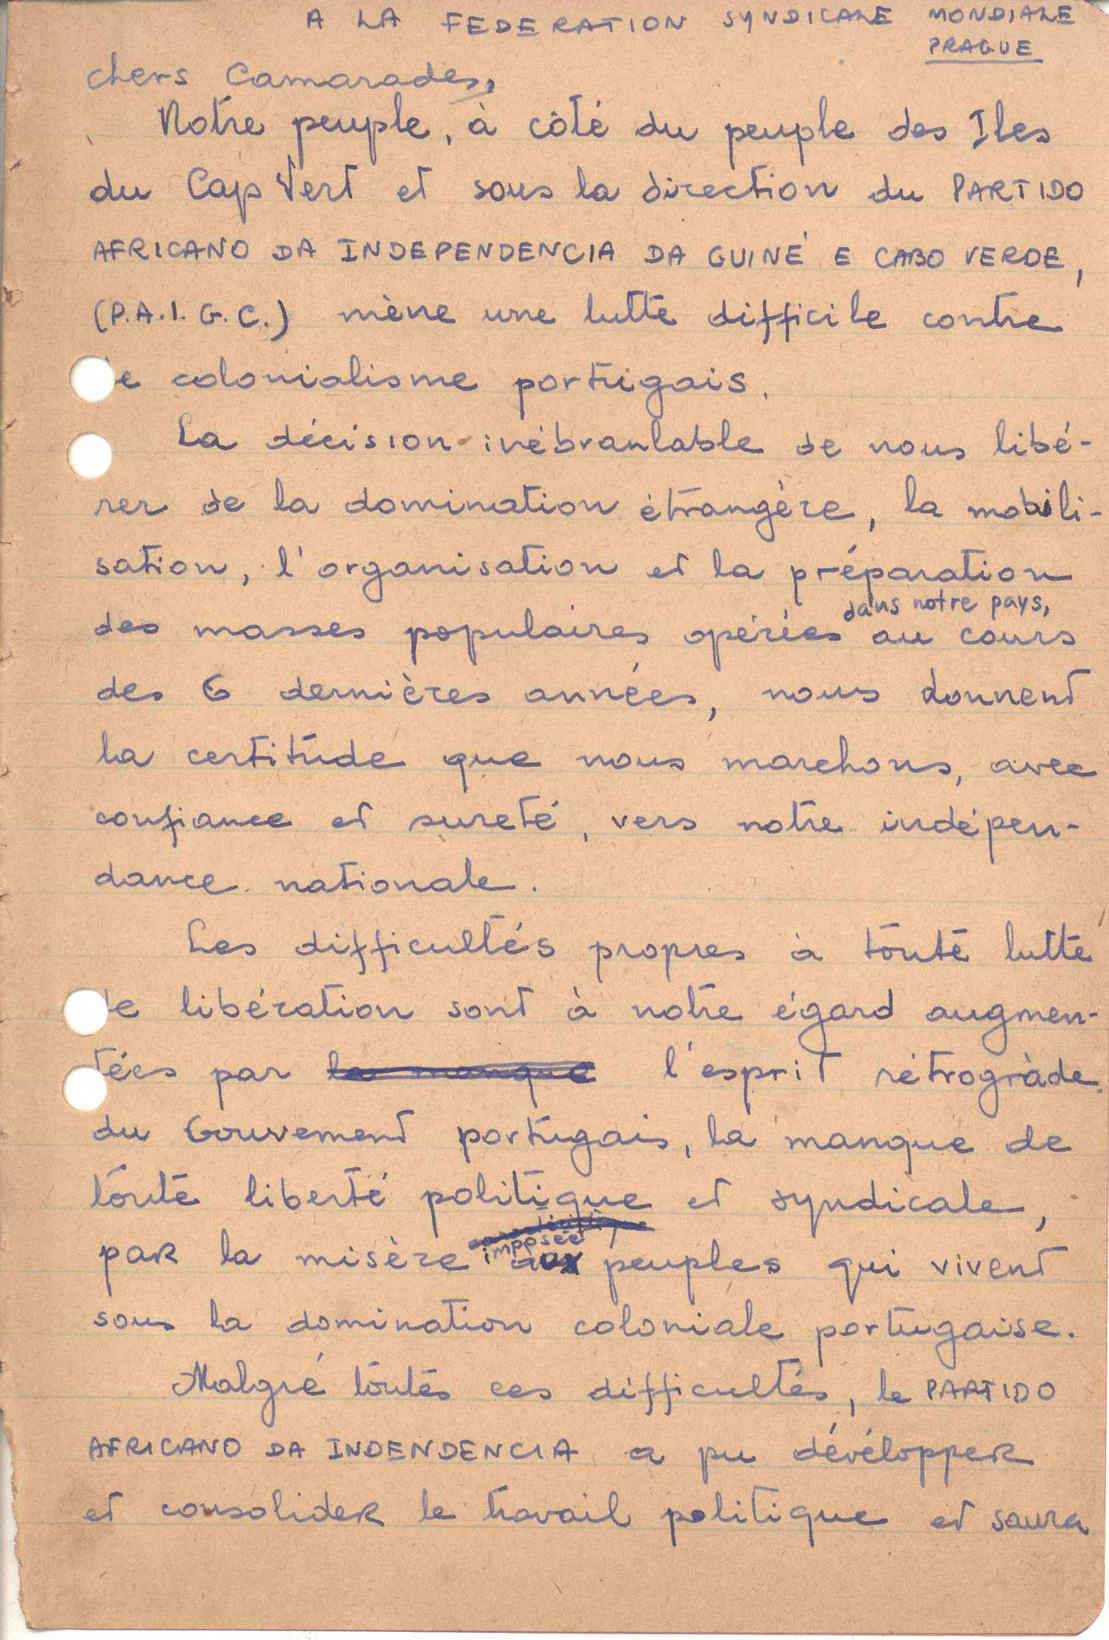 A LA FEDERATION SYNDICALE MONDIALE
PRAGUE
chers Camarades,
Notre peuple, à côté du peuple des Iles
du Cap Vert et sous la direction du PARTIDO
AFRICANO DA INDEPENDENCIA DA GUINÉ E CABO VERDE,
(P.A.I.G.C.) mène une lutte difficile contre
le colonialisme portugais.
La décision inébranlable de nous libé-
rer de la domination étrangère, la mobili-
sation, l'organisation et la préparation
dans notre pays,
des masses populaires opérées au cours
des 6 dernières années, nous donnent
la certitude que nous marchons, avec
confiance et sureté, vers notre indépen-
dance nationale.
Les difficultés propres à toute lutte
de libération sont à notre égard augmen-
tées par le manque l'esprit rétrogràde
du Gouvement portugais, la manque de
toute liberté politique et syndicale,
imposée
par la misère aux peuples qui vivent
sous la domination coloniale portugaise.
Malgré toutes ces difficultés, le PARTIDO
AFRICANO DA INDENDENCIA a pu dévélopper
et consolider le travail politique et saura